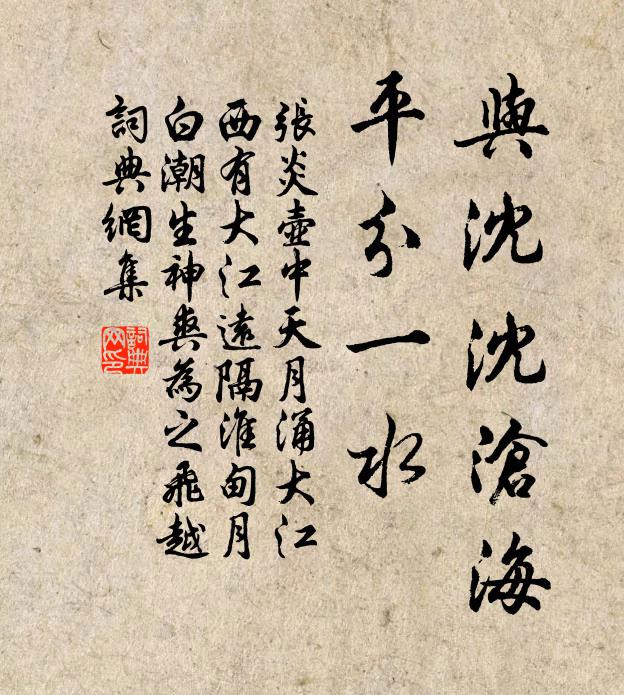 與沈沈滄海
平分一水
張炎壺中天月涌大江
西有大江遠隔淮甸月
白潮生神爽為之飛越
詞典網集
詞典
网印